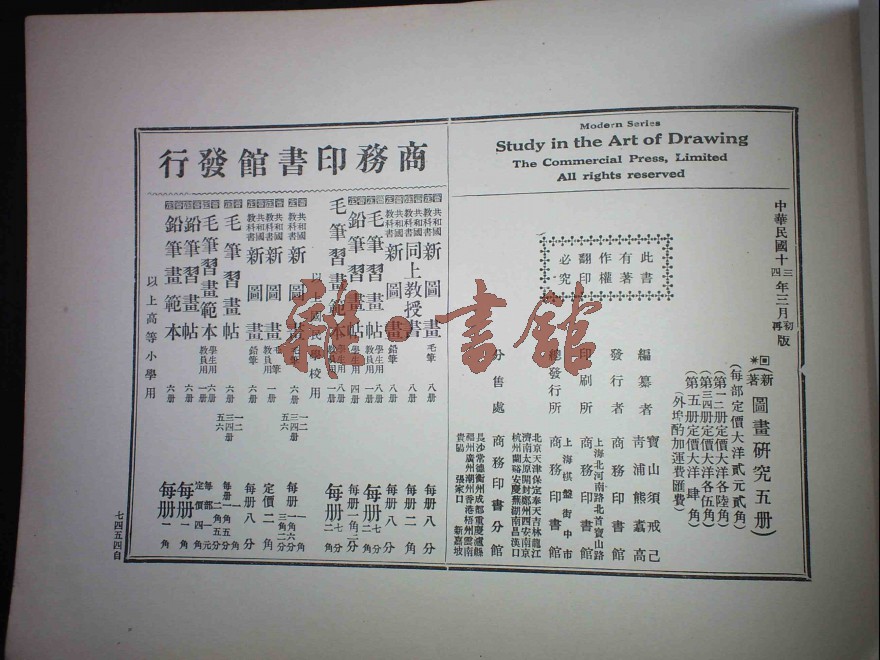 Modern Series
Study in the Art of Drawing
The Commercial Press, Limited
All rights reserved
中華民國十三年三月初版
四
再
此書
有著
作權
翻印
必究
新著
圖畫研究五册
(每部定價大洋貳元貳角)
(第一二册定價大洋各陸角)
(第三四册定價大洋各伍角)
(第五册定價大洋肆角)
(外埠酌加運費匯費)
編纂者
寶山須戒己
青浦熊翥高
發行者
商務印書館
印刷所
上海北河南路北首寶山路
商務印書館
總發行所
上海棋盤街中市
商務印書館
分售處
北京天津保定奉天吉林龍江
濟南太原開封鄭州西安南京
杭州蘭谿安慶蕪湖南昌漢口
商務印書分館
長沙常德衡州成都重慶瀘縣
福州廣州潮州香港梧州雲南
貴陽 張家口 新嘉坡
商務印書館發行
共和國教科書 新圖畫 毛筆 八册 每册八分
共和國教科書 同上教授書 八册 每册二角
共和國教科書 新圖畫 鉛筆 八册 每册八分
毛筆習畫帖 學生用 八册 每册七分
教員用 二角
鉛筆習畫帖 學生用 四册 每册一角二分
毛筆習畫範本 教員用 八册 每册
以上國民學校用
共和國教科書 新圖畫 毛筆 六册 一二 三四册 五六 每册
共和國教科書 新圖畫 毛筆 教員用 一册 定價二角
共和國教科書 新圖畫 鉛筆 六册 每册八分
毛筆習畫帖 六册 一二 三四册 五六 每册
毛筆習畫範本 學生用 六册
教員用 一册
鉛筆習畫帖 六册 每册一角
鉛筆畫範本 六册 每册一角
以上高等小學用
七四五四自
雜·書館